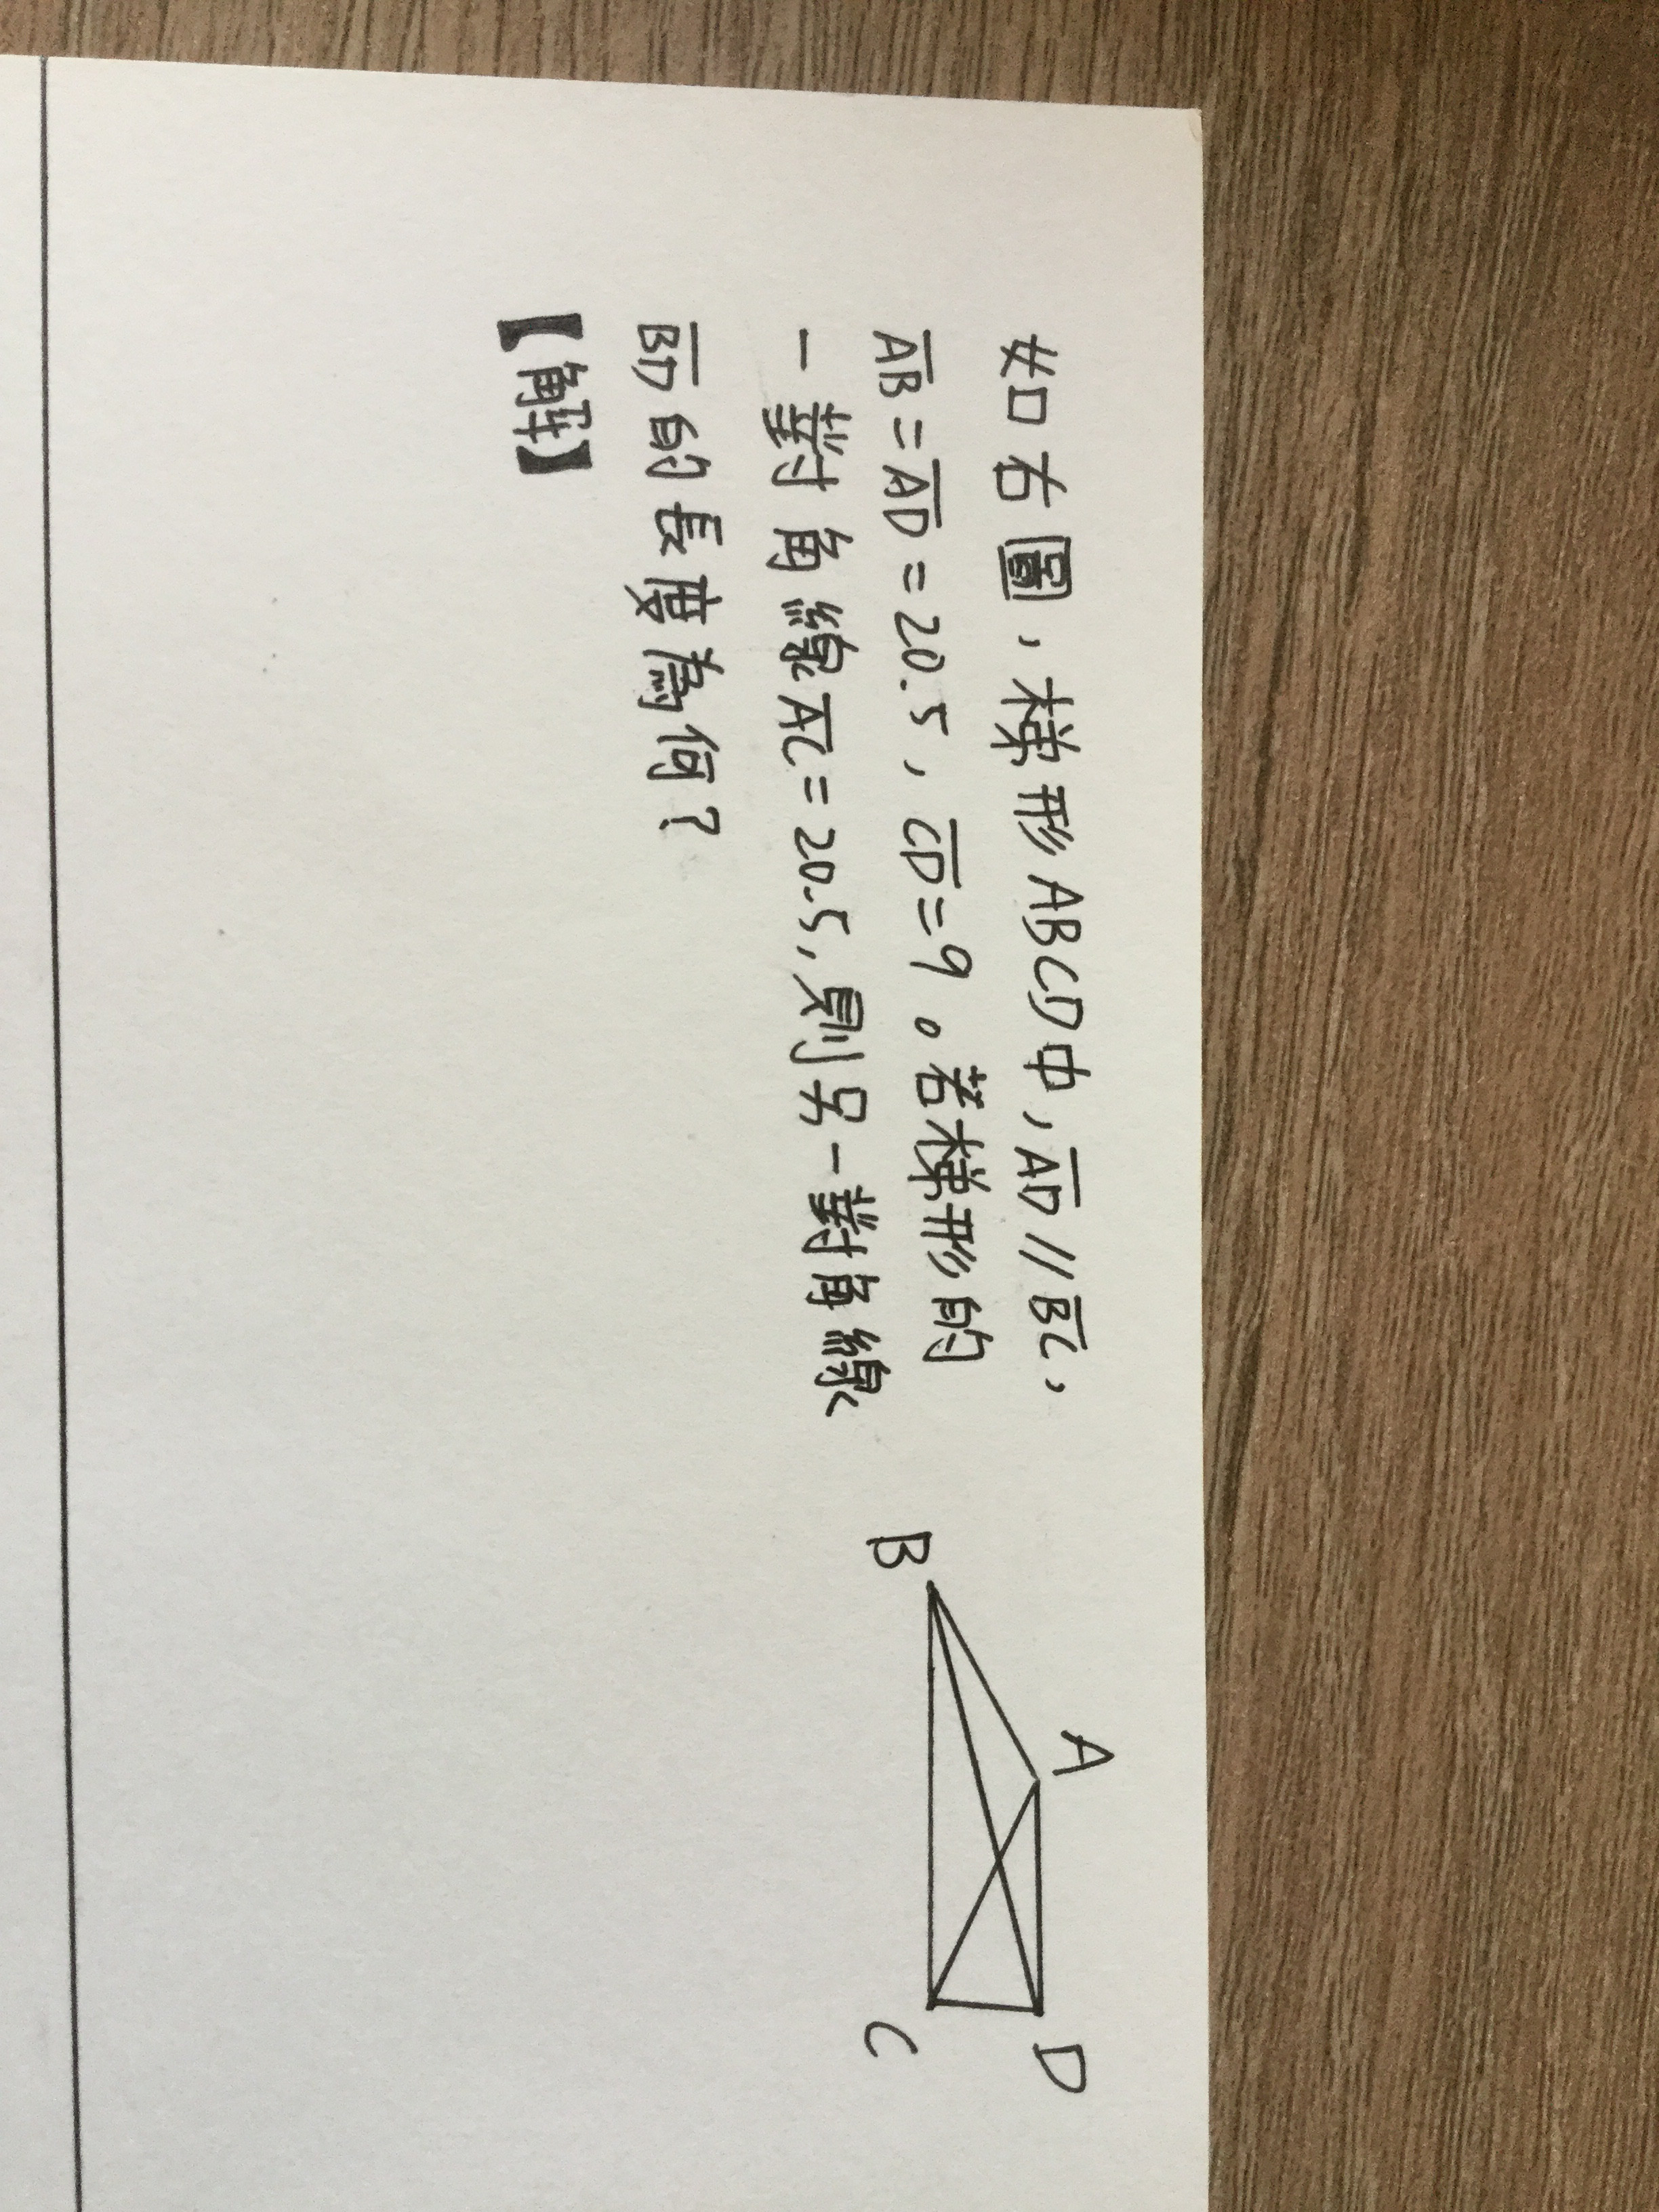 如右圖，梯形ABCD中，A̅D̅ // B̅C̅，
A̅B̅=A̅D̅=20.5，C̅D̅=9。若梯形的
一對角線A̅C̅=20.5，則另一對角線
B̅D̅的長度為何？
【解】
A
D
B
C